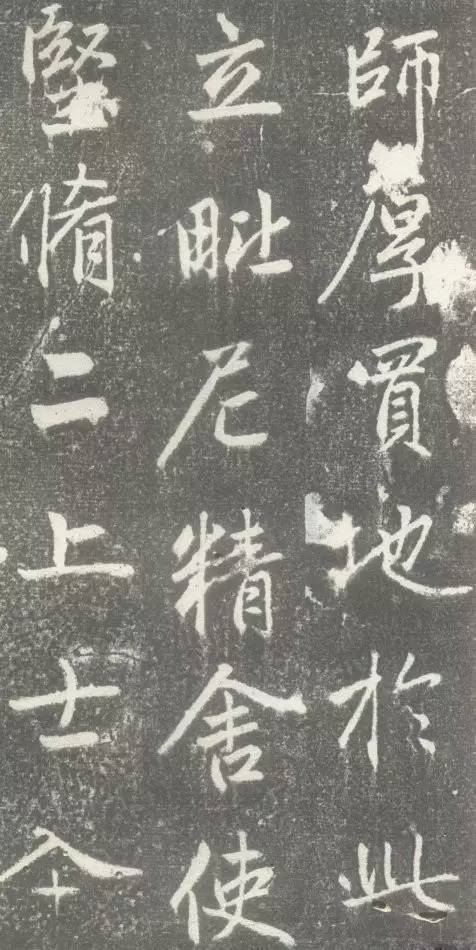 師厚買地於此
立毗尼精舍使
堅脩二上士个